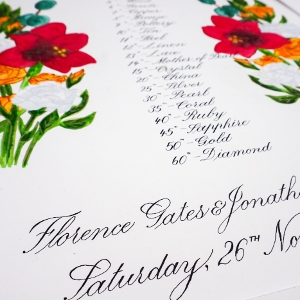 Bronze
Pottery
Tin
12th Linen
13th Lace
14th Mother of Pearl
15th Crystal
20th China
25th Silver
30th Pearl
35th Coral
40th Ruby
45th Sapphire
50th Gold
60th Diamond
Florence Gates & Jonath
Saturday, 26TH No